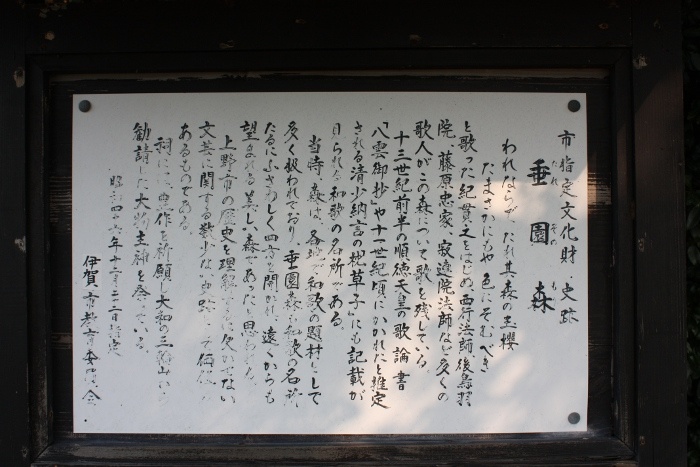 市指定文化財 史跡
垂園森
たれ その もり
われならでたれ其森の玉櫻
たまさかにもや色にそむべき
と歌った紀貫之をはじめ、西行法師、後鳥羽
院、藤原忠家、寂蓮院法師など多くの
歌人がこの森について歌を残している。
十三世紀前半の順徳天皇の歌論書
「八雲御抄」や十一世紀頃にかかれたと推定
される清少納言の「枕草子」にも記載が
見られる和歌の名所である。
当時、森は、各地で和歌の題材として
多く扱われており、垂園森も和歌の名所
たるにふさわしく四方を開かれ、遠くからも
望まれる美しい森であったと思われる。
上野市の歴史を理解するに欠かせない
文芸に関する数少ない史跡として価値が
あるものである。
祠には、豊作を祈願し大和の三輪山から
勧請した大物主神を祭っている。
昭和四十六年十二月二二日指定
伊賀市教育委員会